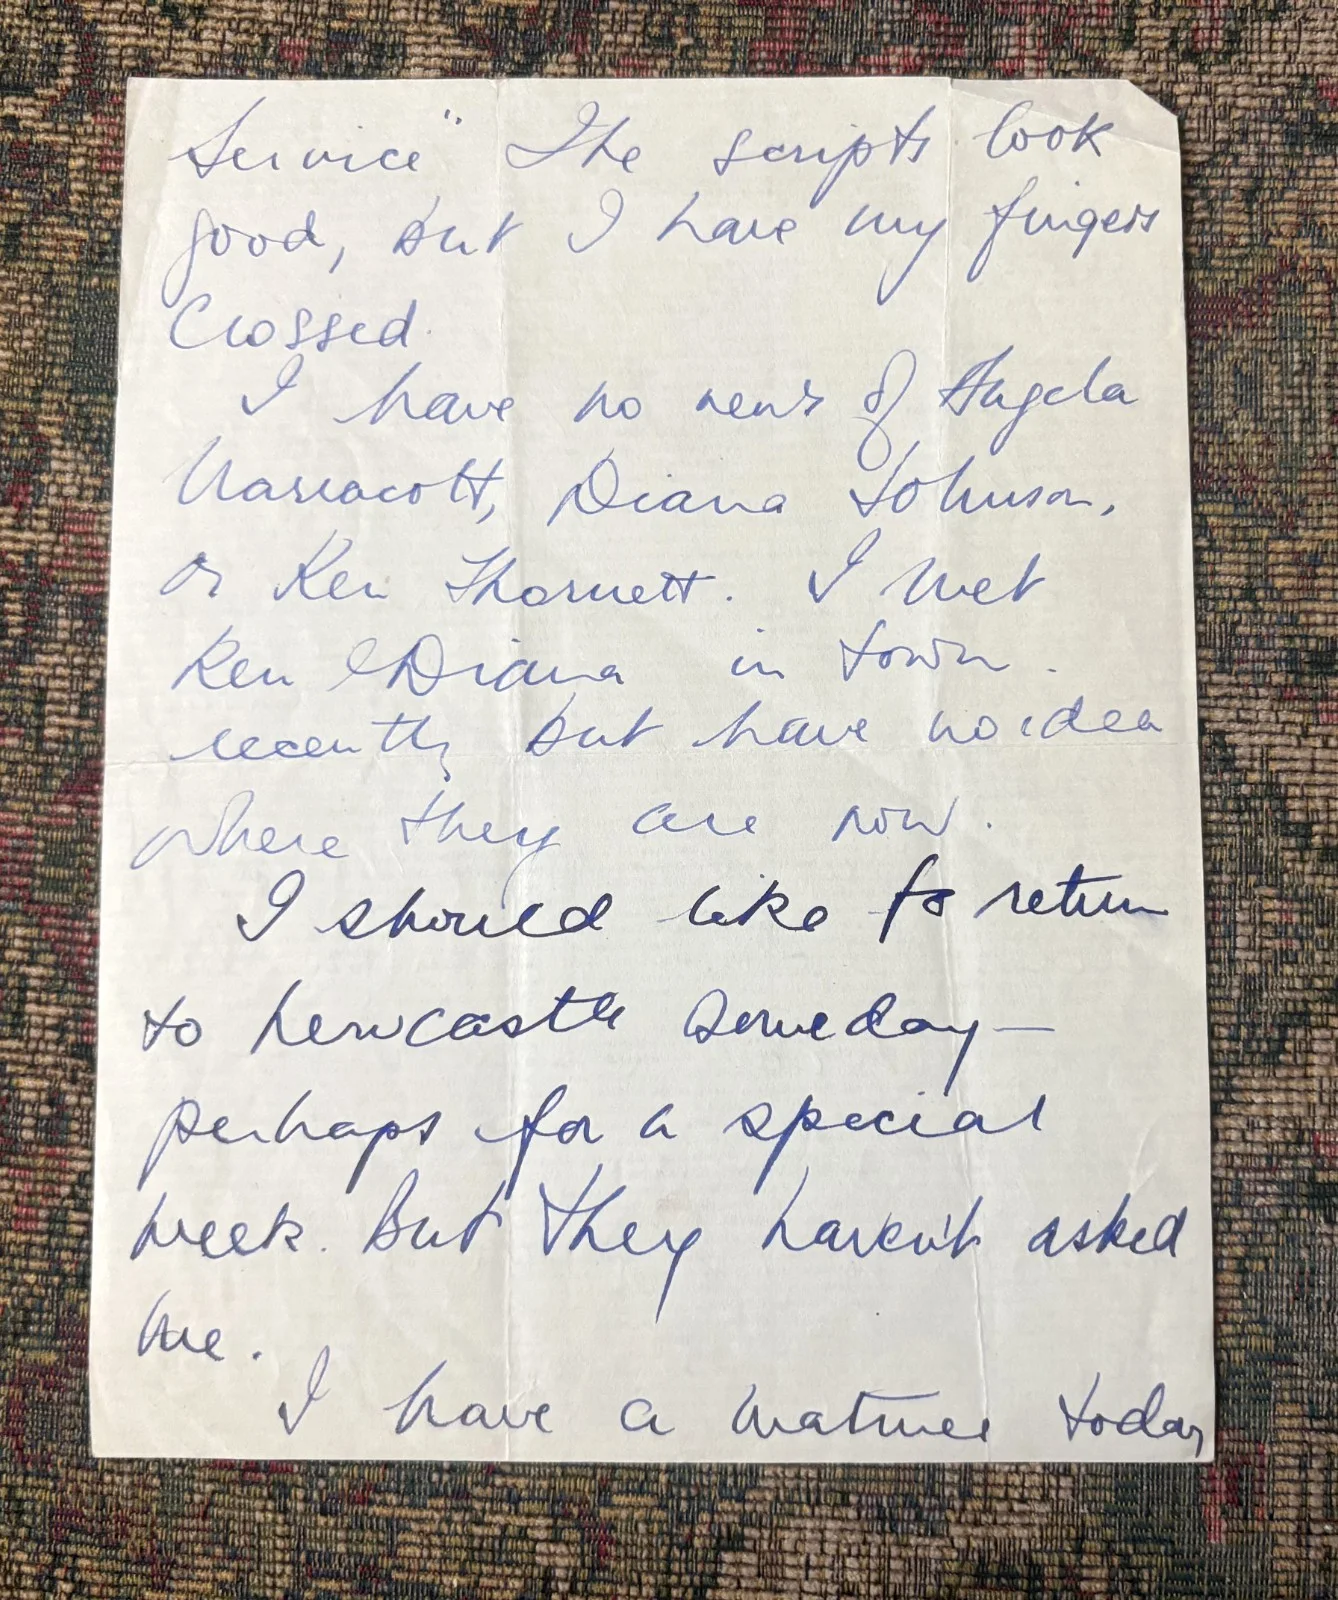 Service" The scripts look
good, but I have my fingers
Crossed.
I have no news of Angela
Marracott, Diana Johnson,
or Ken Thornett. I met
Ken & Diana in town.
recently but have no idea
where they are now.
I should like to return
to Newcastle someday—
perhaps for a special
week. But they haven't asked
me.
I have a matinee today